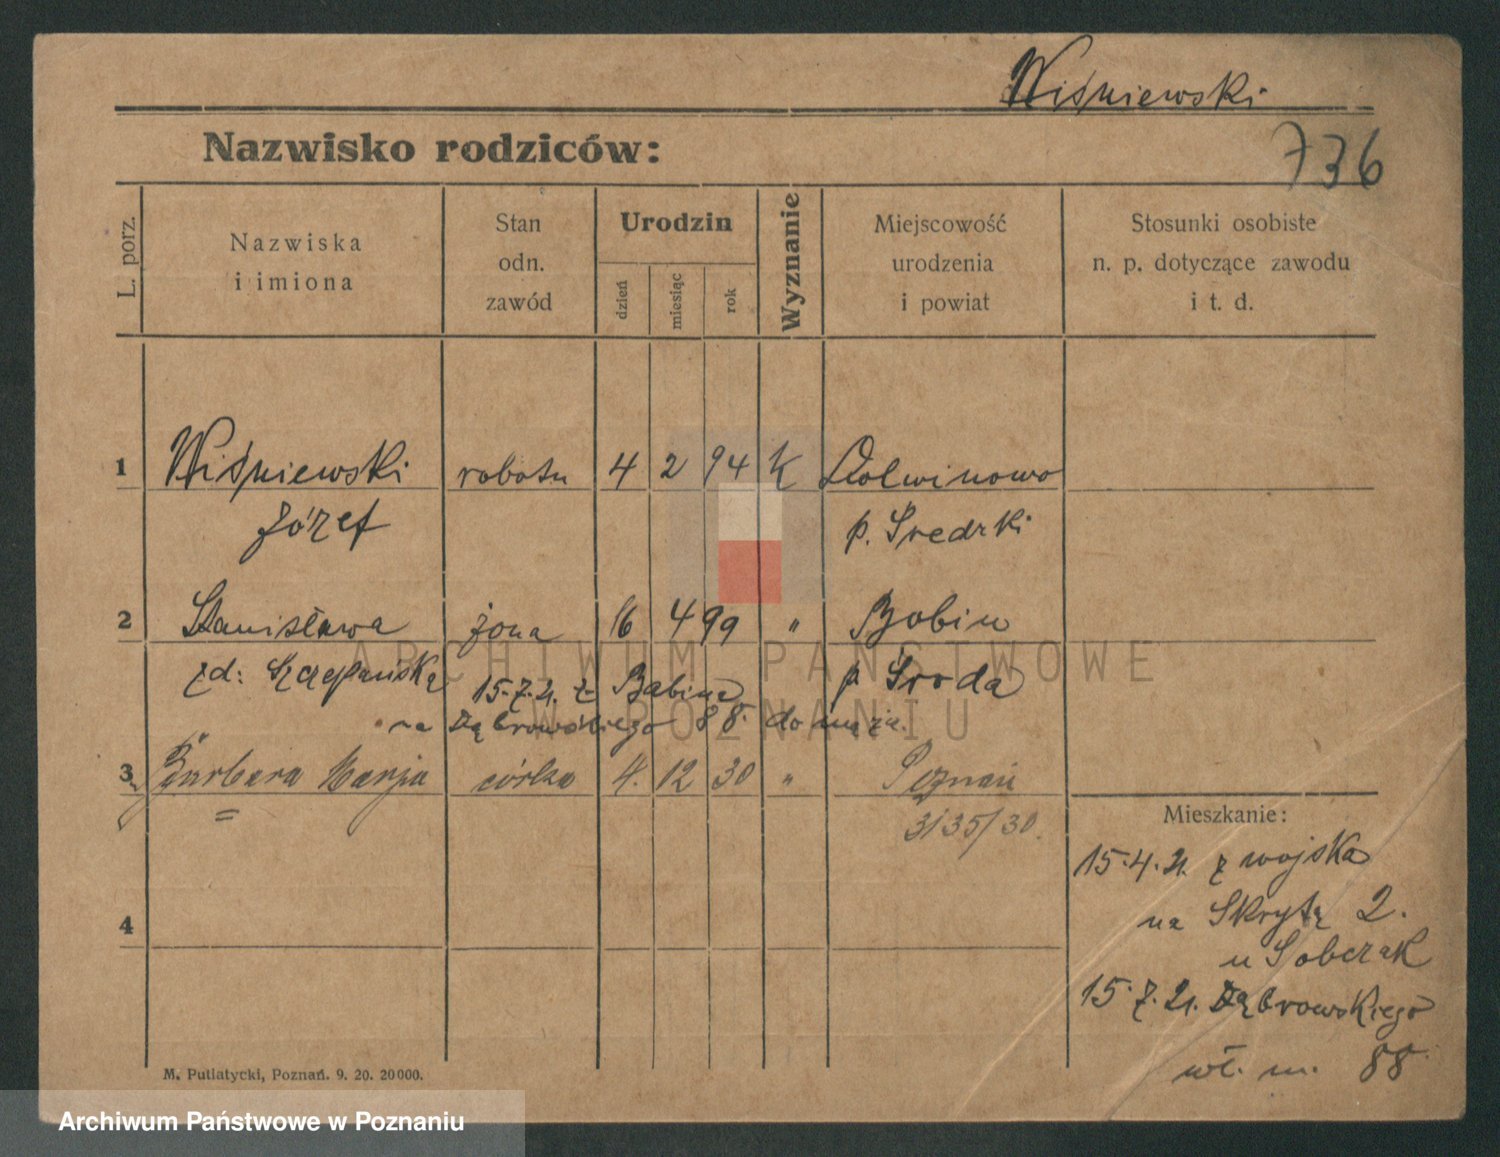 Wiśniewski
Nazwisko rodziców:
736
L. porz.
Nazwiska
i imiona
Stan
odn.
zawód
Urodzin
dzień
miesiąc
rok
Wyznanie
Miejscowość
urodzenia
i powiat
Stosunki osobiste
n. p. dotyczące zawodu
i t. d.
1 Wiśniewski robotn 4 2 94 K Dolwinowo
Józef p. Średzki
2 Stanisława żona 16 4 99 " Bobin
zd: Szczepańska p. Środa
15.7.21. z Babina
na Dąbrowskiego 88 do męża.
3 Barbara Marja córka 4. 12 30 " Poznań
3135/30.
4
Mieszkanie:
15.4.21. z wojska
na Skrytą 2.
u Sobczak
15.7.21. Dąbrowskiego
wł. m. 88
M. Putiatycki, Poznań. 9. 20. 20000.
ARCHIWUM PAŃSTWOWE
W POZNANIU
Archiwum Państwowe w Poznaniu